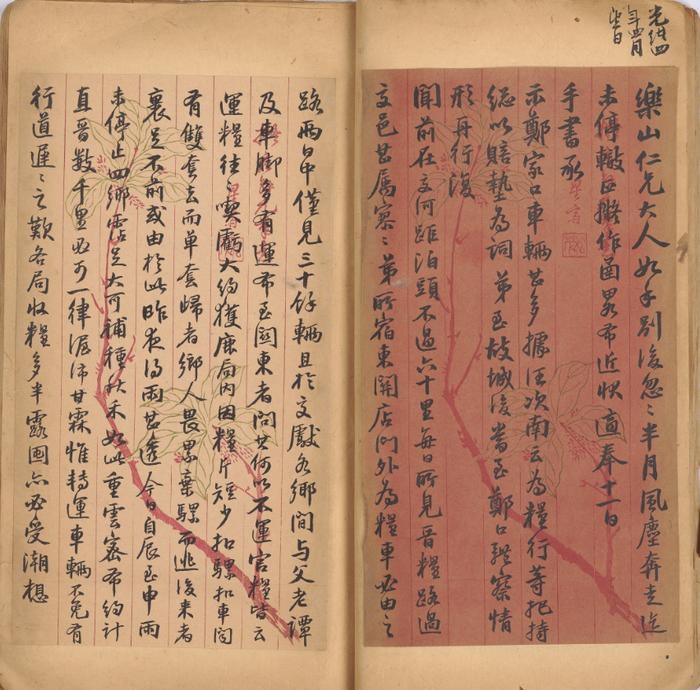 光緒四
年四月
樂山仁兄大人如手別後忽〻半月風塵奔走迄
未停轍正擬作函畧布近狀適奉十一日
手書承
示鄭家口車輛甚多據汪次南云為糧行等把持
縂以賠墊為詞弟至故城後當至鄭口體察情
形再行復
聞前在交河距泊頭不過六十里每日所見晉糧路過
文邑甚屬寥〻弟所宿東關店門外為糧車必由之
路兩日中僅見三十餘輛且於文獻各鄉間與父老譚
及車脚多有運布至關東者問其何以不運官糧皆云
運糧往〻喫虧大約獲鹿局內因糧斤短少扣騾扣車間
有雙套去而單套歸者鄉人畏累棄騾而逃後來者
裹足不前或由於此昨夜得雨甚透今日自辰至申雨
未停止四鄉霑足大可補種秋禾如此重雲密布約計
直晉數千里必可一律渥沛甘霖惟轉運車輛不免有
行道遲〻之歎各局收糧多半露囤亦必受潮想